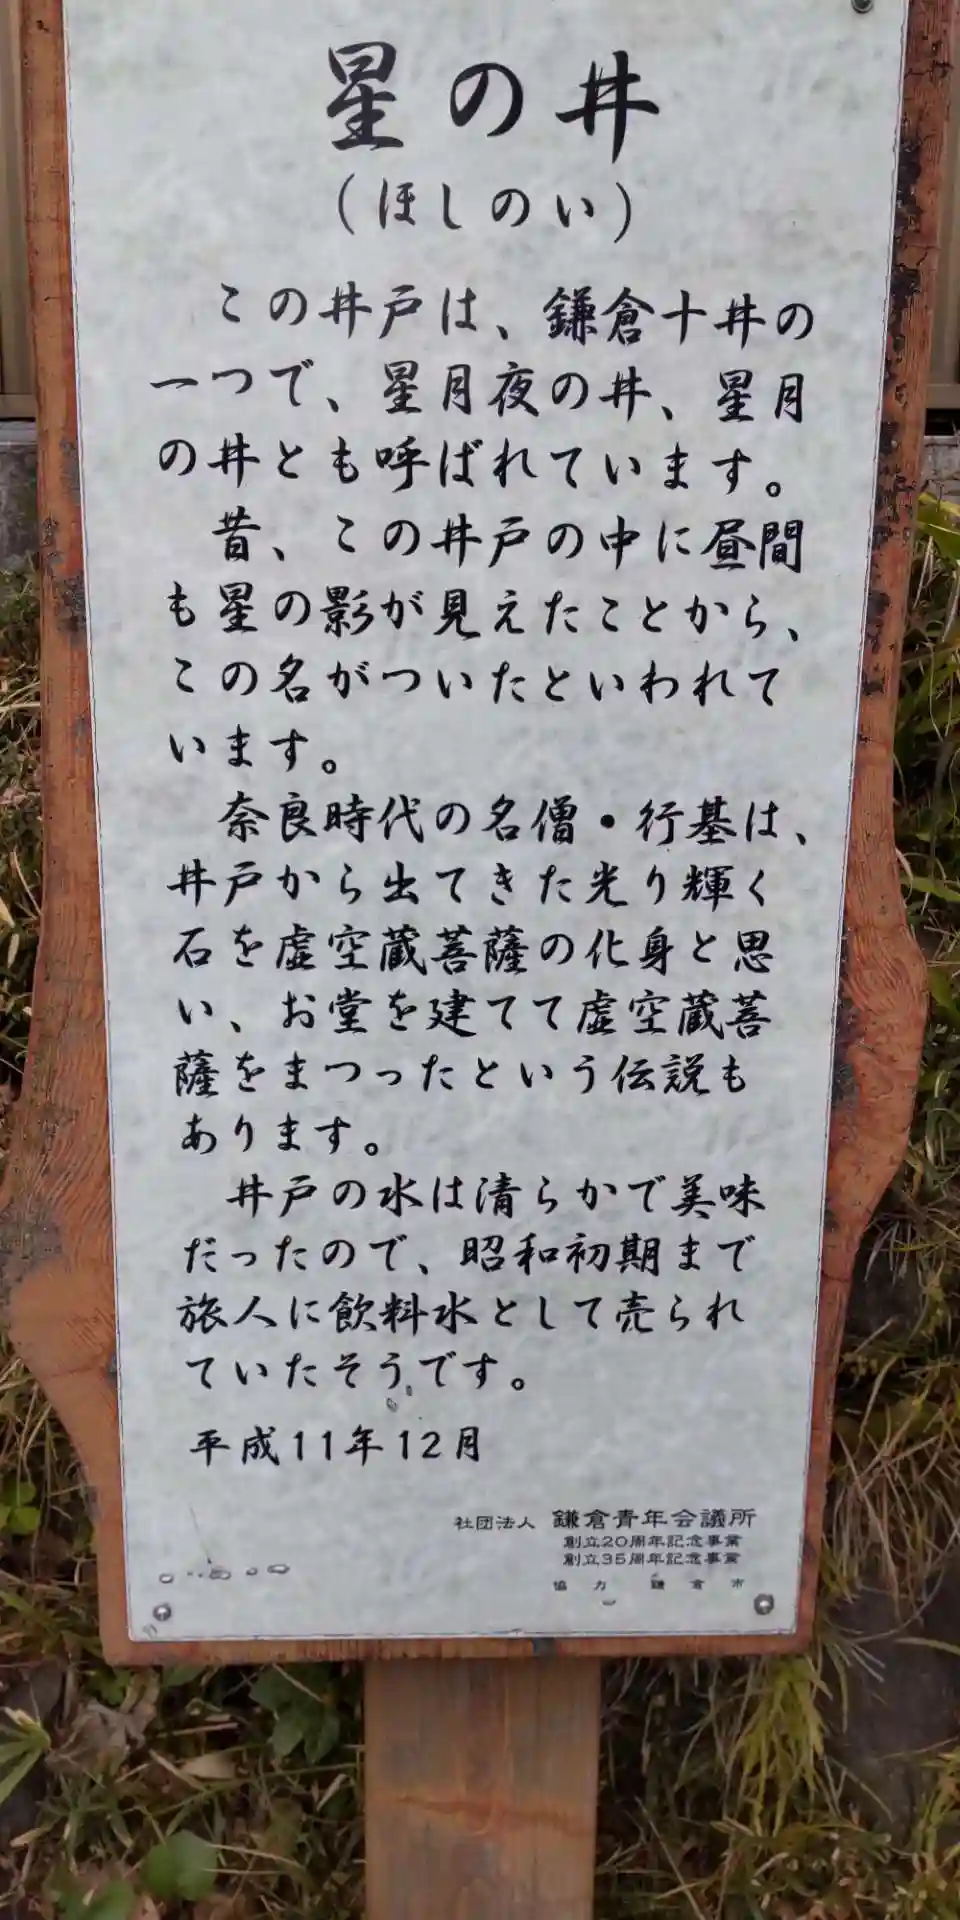 星の井
(ほしのい)
この井戸は、鎌倉十井の
一つで、星月夜の井、星月
の井とも呼ばれています。
昔、この井戸の中に昼間
も星の影が見えたことから、
この名がついたといわれて
います。
奈良時代の名僧・行基は、
井戸から出てきた光り輝く
石を虚空蔵菩薩の化身と思
い、お堂を建てて虚空蔵菩
薩をまつったという伝説も
あります。
井戸の水は清らかで美味
だったので、昭和初期まで
旅人に飲料水として売られ
ていたそうです。
平成11年12月
社団法人 鎌倉青年会議所
創立20周年記念事業
創立35周年記念事業
協力 鎌倉市